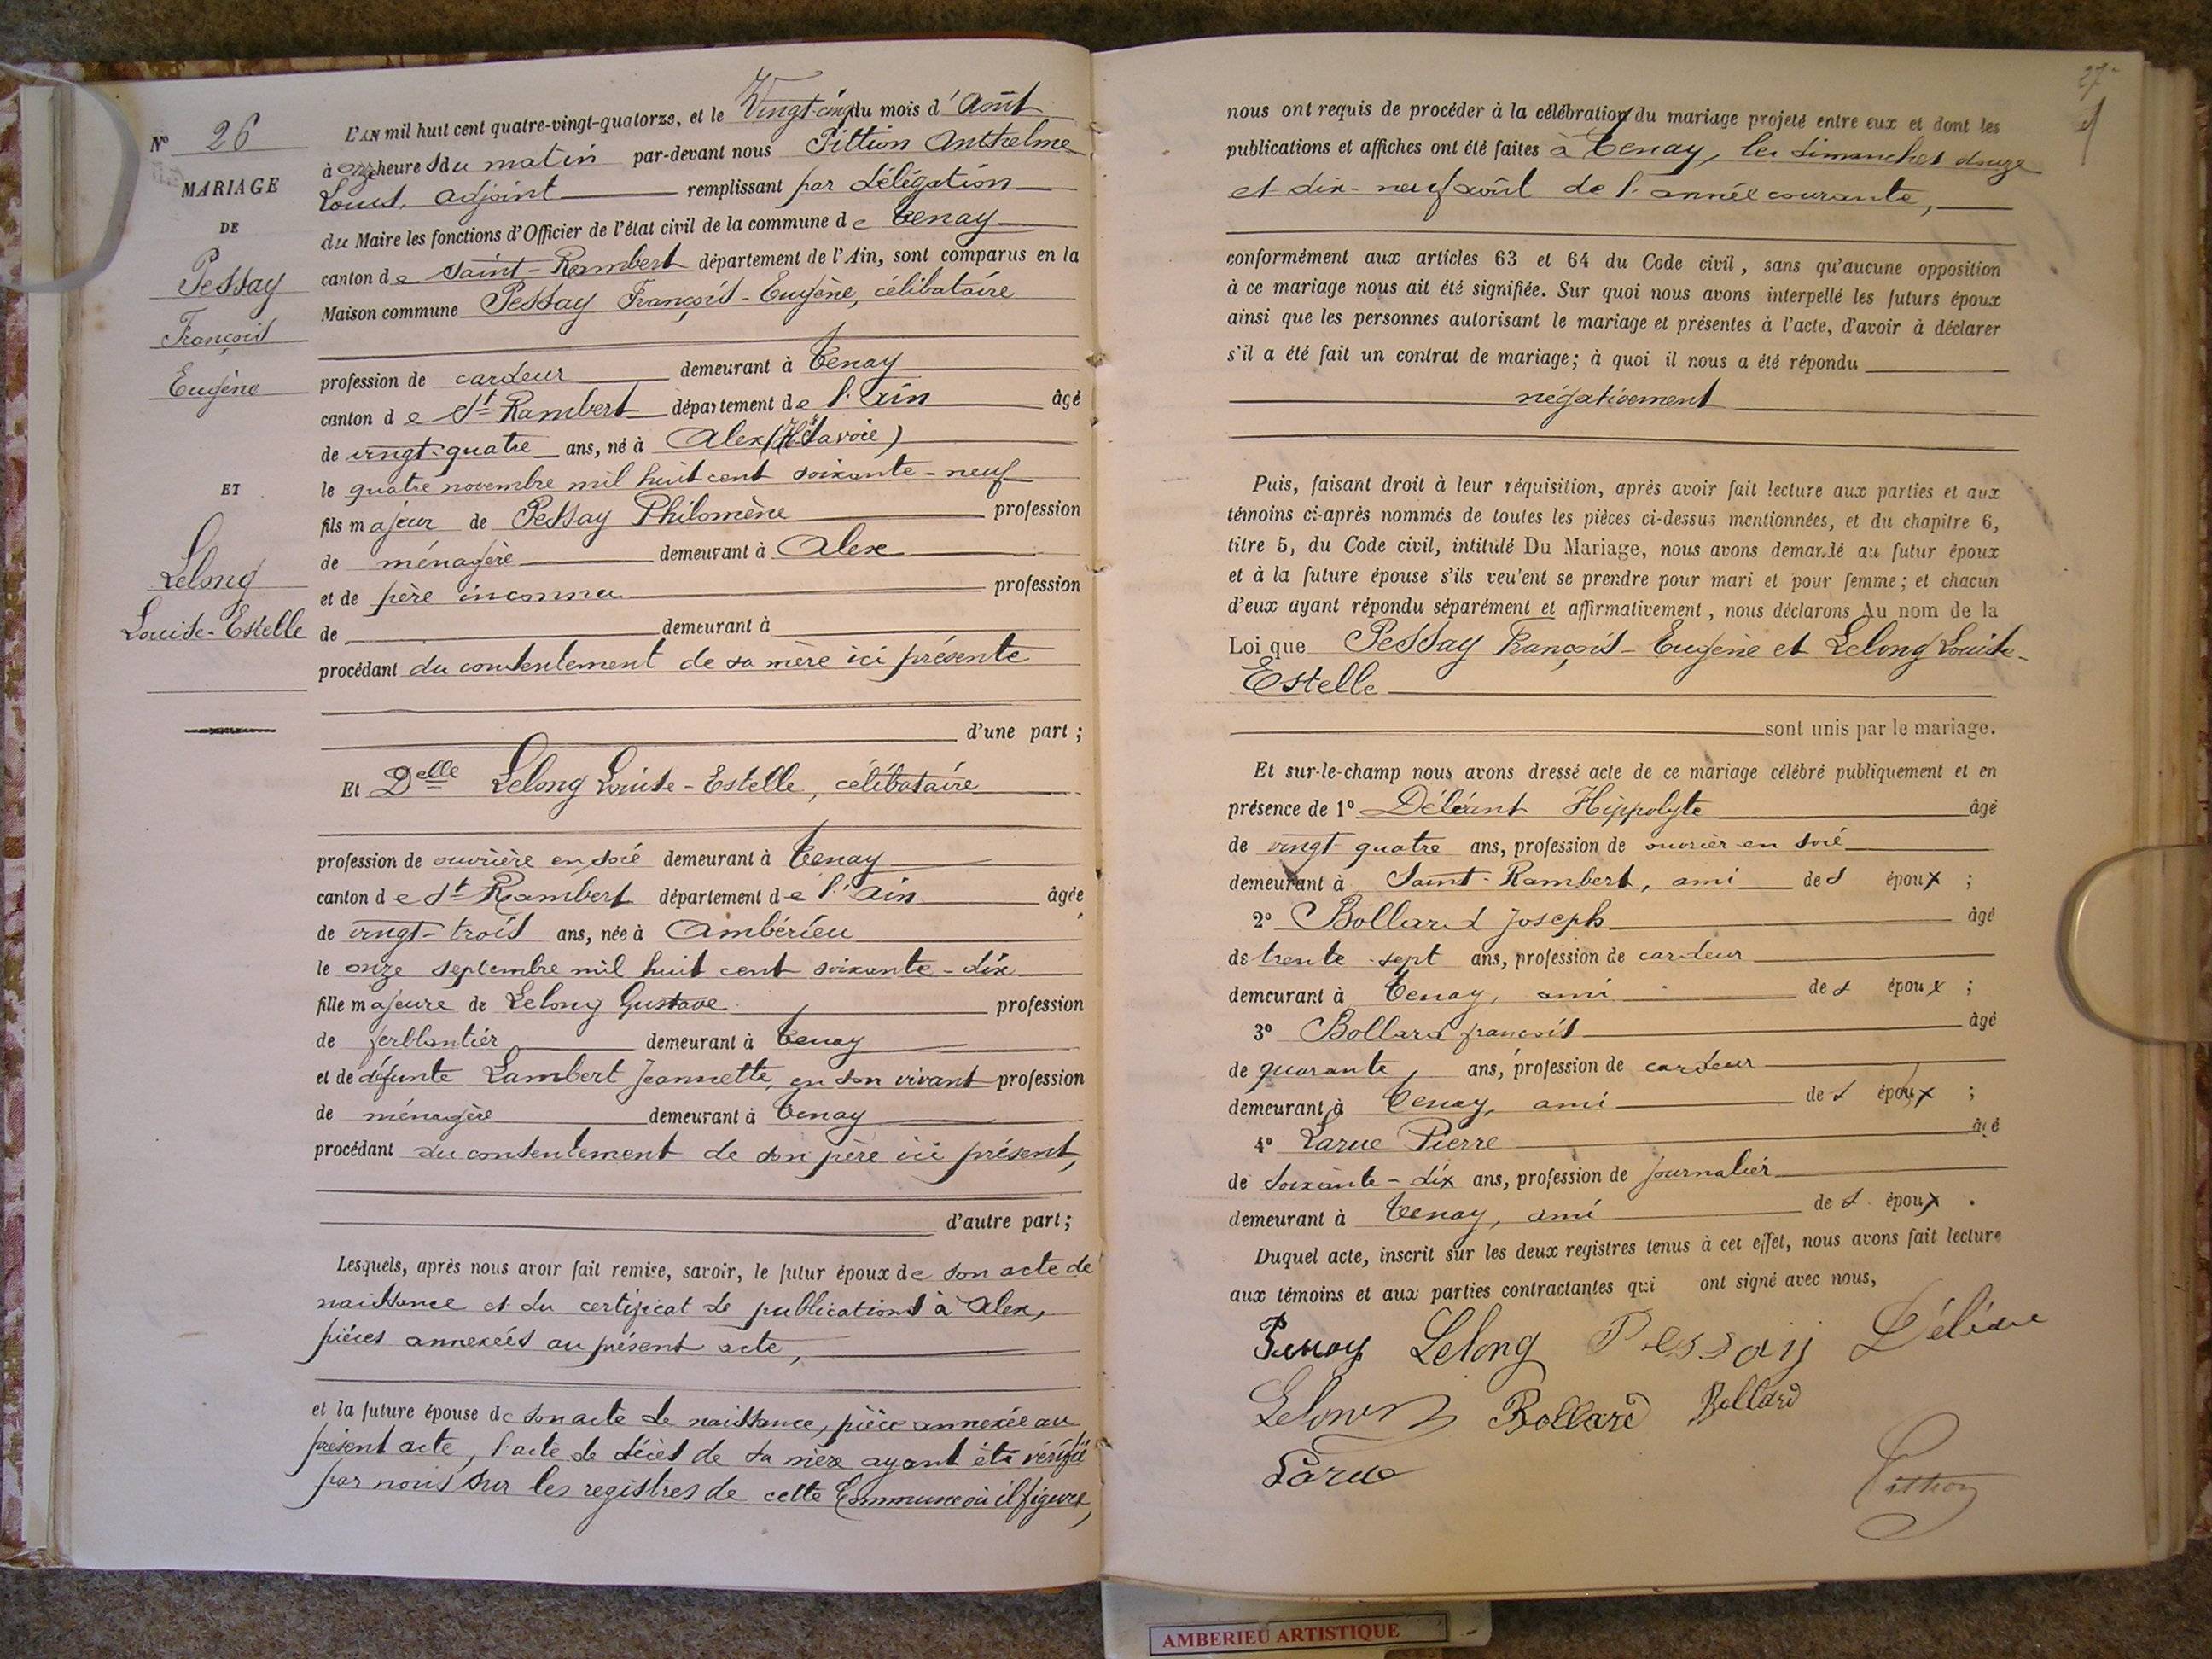 N° 26
MARIAGE
DE
Pessay
François
Eugène
ET
Lelong
Louise-Estelle
L'AN mil huit cent quatre-vingt-quatorze, et le Vingt-cinq du mois d'Août
à onze heures du matin par-devant nous Pittion Anthelme
Louis, adjoint remplissant par délégation
du Maire les fonctions d'Officier de l'état civil de la commune de Tenay
canton de Saint-Rambert département de l'Ain, sont comparus en la
Maison commune Pessay François-Eugène, célibataire
profession de cardeur demeurant à Tenay
canton de St Rambert département de l'Ain âgé
de vingt-quatre ans, né à Alex (Hte Savoie)
le quatre novembre mil huit cent soixante-neuf
fils majeur de Pessay Philomène profession
de ménagère demeurant à Alex
et de père inconnu profession
de demeurant à
procédant du consentement de sa mère ici présente
d'une part ;
Et Delle Lelong Louise-Estelle, célibataire
profession de ouvrière en soie demeurant à Tenay
canton de St Rambert département de l'Ain âgée
de vingt-trois ans, née à Ambérieu
le onze septembre mil huit cent soixante-dix
fille majeure de Lelong Gustave profession
de ferblantier demeurant à Tenay
et de défunte Lambert Jeannette, en son vivant profession
de ménagère demeurant à Tenay
procédant du consentement de son père ici présent,
d'autre part ;
Lesquels, après nous avoir fait remise, savoir, le futur époux de son acte de
naissance et du certificat de publications à Alex,
pièces annexées au présent acte,
et la future épouse de son acte de naissance, pièce annexée au
présent acte, l'acte de décès de sa mère ayant été vérifié
par nous sur les registres de cette Commune où il figure,
27
nous ont requis de procéder à la célébration du mariage projeté entre eux et dont les
publications et affiches ont été faites à Tenay, les dimanches douze
et dix-neuf août de l'année courante,
conformément aux articles 63 et 64 du Code civil, sans qu'aucune opposition
à ce mariage nous ait été signifiée. Sur quoi nous avons interpellé les futurs époux
ainsi que les personnes autorisant le mariage et présentes à l'acte, d'avoir à déclarer
s'il a été fait un contrat de mariage ; à quoi il nous a été répondu
négativement
Puis, faisant droit à leur réquisition, après avoir fait lecture aux parties et aux
témoins ci-après nommés de toutes les pièces ci-dessus mentionnées, et du chapitre 6,
titre 5, du Code civil, intitulé Du Mariage, nous avons demandé au futur époux
et à la future épouse s'ils veulent se prendre pour mari et pour femme ; et chacun
d'eux ayant répondu séparément et affirmativement, nous déclarons Au nom de la
Loi que Pessay François-Eugène et Lelong Louise-
Estelle
sont unis par le mariage.
Et sur-le-champ nous avons dressé acte de ce mariage célébré publiquement et en
présence de 1° Déléant Hippolyte âgé
de vingt quatre ans, profession de ouvrier en soie
demeurant à Saint-Rambert, ami des époux ;
2° Bollard Joseph âgé
de trente-sept ans, profession de cardeur
demeurant à Tenay, ami des époux ;
3° Bollard françois âgé
de quarante, ans, profession de cardeur
demeurant à Tenay, ami des époux ;
4° Larue Pierre âgé
de soixante-dix ans, profession de journalier
demeurant à Tenay, ami des époux .
Duquel acte, inscrit sur les deux registres tenus à cet effet, nous avons fait lecture
aux témoins et aux parties contractantes qui ont signé avec nous,
Lelong Pessay
Lelong Bollard Bollard
Larue
Pittion
AMBERIEU ARTISTIQUE